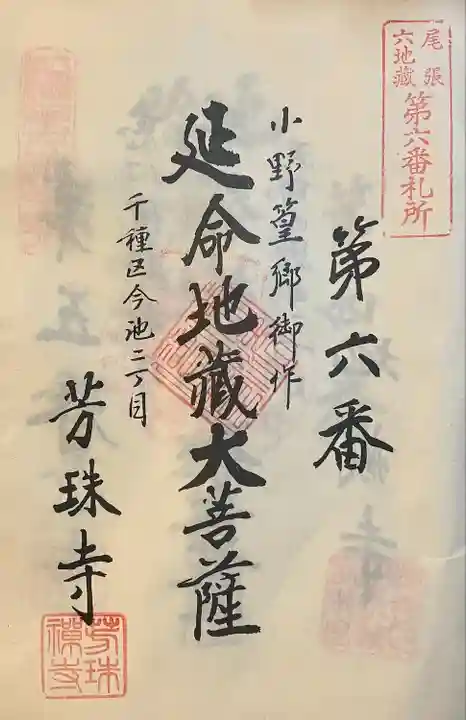 尾張
六地蔵
第六番札所
第六番
小野篁郷御作
延命地蔵大菩薩
千種区今池二丁目
芳珠寺
芳珠
禅寺